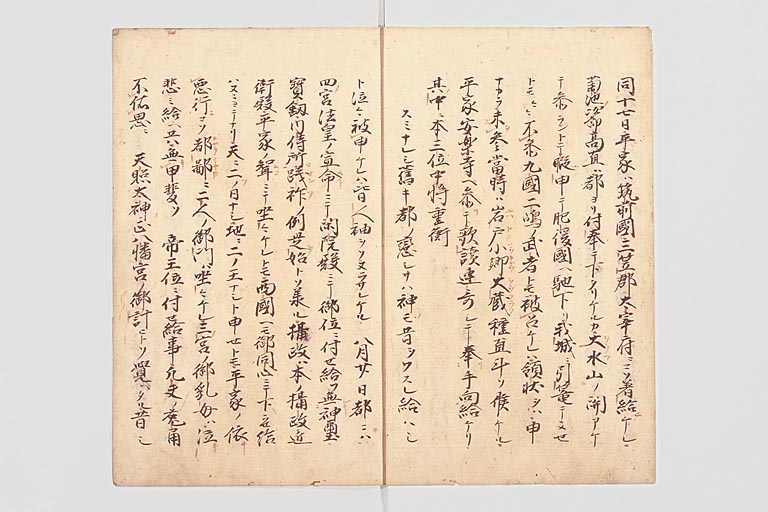 同十七日平家ハ筑前國三笠郡大宰府ニコソ著給ケレ
菊池次郎髙直都ヨリ付奉テ下タリケルカ大水山ノ関アケ
テ参ラントテ暇申テ肥後國ヘ馳下リ我城ニ引籠テメセ
トモ々々不参九國二嶋ノ武者トモ被召ケレハ領状ヲハ申
ナカラ未参當時ハ岩戸小卿大蔵種直斗リ候ケル
平家安楽寺ヘ参テ歌讀連哥シテ奉手向給ケリ
其中ニ本三位中将重衡
スミナレシ舊キ都ノ戀シサハ神モ昔ヲワスレ給ハシ
ト泣々被申ケレハ皆人袖ヲソヌラサレケル 八月廿日都ニハ
四宮法皇ノ宣命ニテ閑院殿ニテ御位ニ付セ給フ無神璽
寳釼内侍所践祚ノ例是始トソ承ル攝政ハ本ノ攝政近
衛殿平家ノ聟ニテ坐々ケレトモ西國ヘモ御同心ニ下ラセ給
ハヌニヨテナリ天ニ二ノ日ナシ地ニ二ノ王ナシト申セトモ平家ノ依
悪行コソ都鄙ニ二人ノ御門ハ坐々ケレ三宮ノ御乳母ハ泣
悲ミ給ヘ共無甲斐ソ 帝王位ニ付セ給事凡夫ノ兎角
不佑思ニ 天照大神正八幡宮ノ御計ヒトソ覺ヘタル昔シ